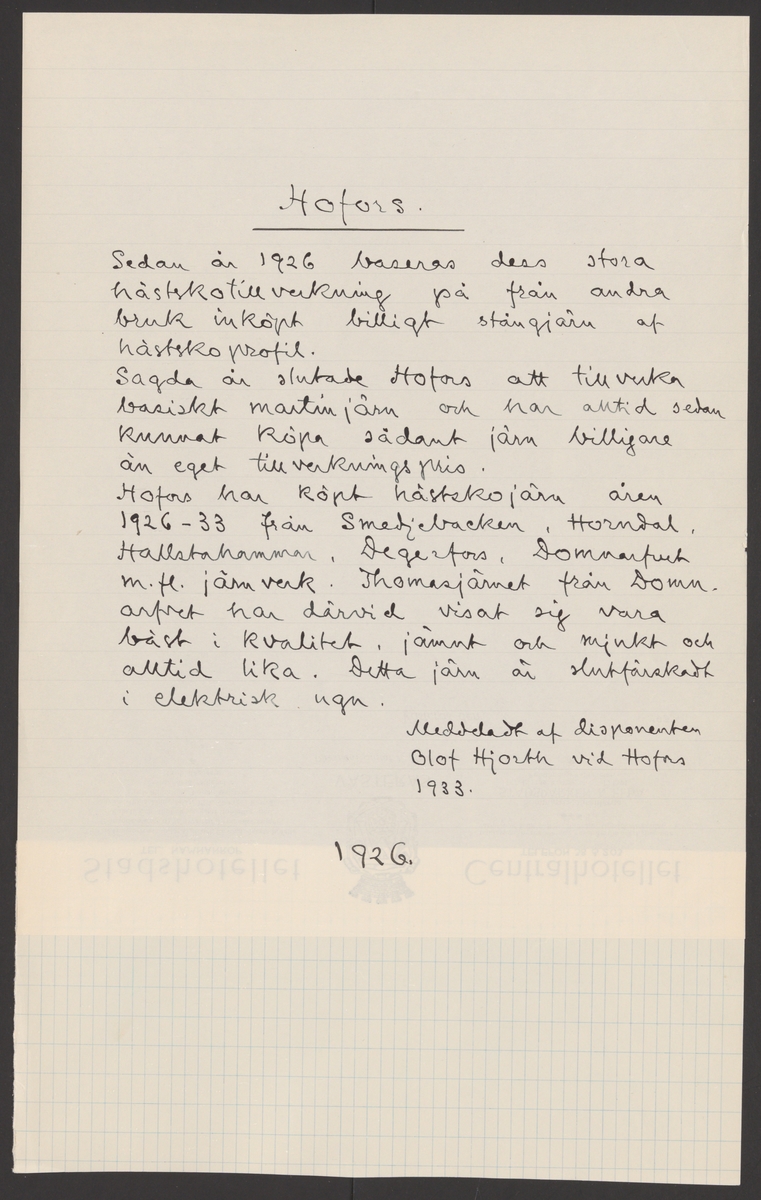 Hofors.
Sedan år 1926 baseras dess stora
hästskotillverkning på från andra
bruk inköpt billigt stångjärn af
hästskoprofil.
Sagda år slutade Hofors att tillverka
basiskt martinjärn och har alltid sedan
kunnat köpa sådant järn billigare
än eget tillverkningspris.
Hofors har köpt hästskojärn åren
1926-33 från Smedjebacken, Horndal,
Hallstahammar, Degerfors, Domnarfvet
m.fl. järnverk. Thomasjärnet från Domn-
arfvet har därvid visat sig vara
bäst i kvalitet, jämnt och mjukt och
alltid lika. Detta järn är slutfärskadt
i elektrisk ugn.
Meddeladt af disponenten
Olof Hjorth vid Hofors
1933.
1926.
Stadshotellet Centralhotellet